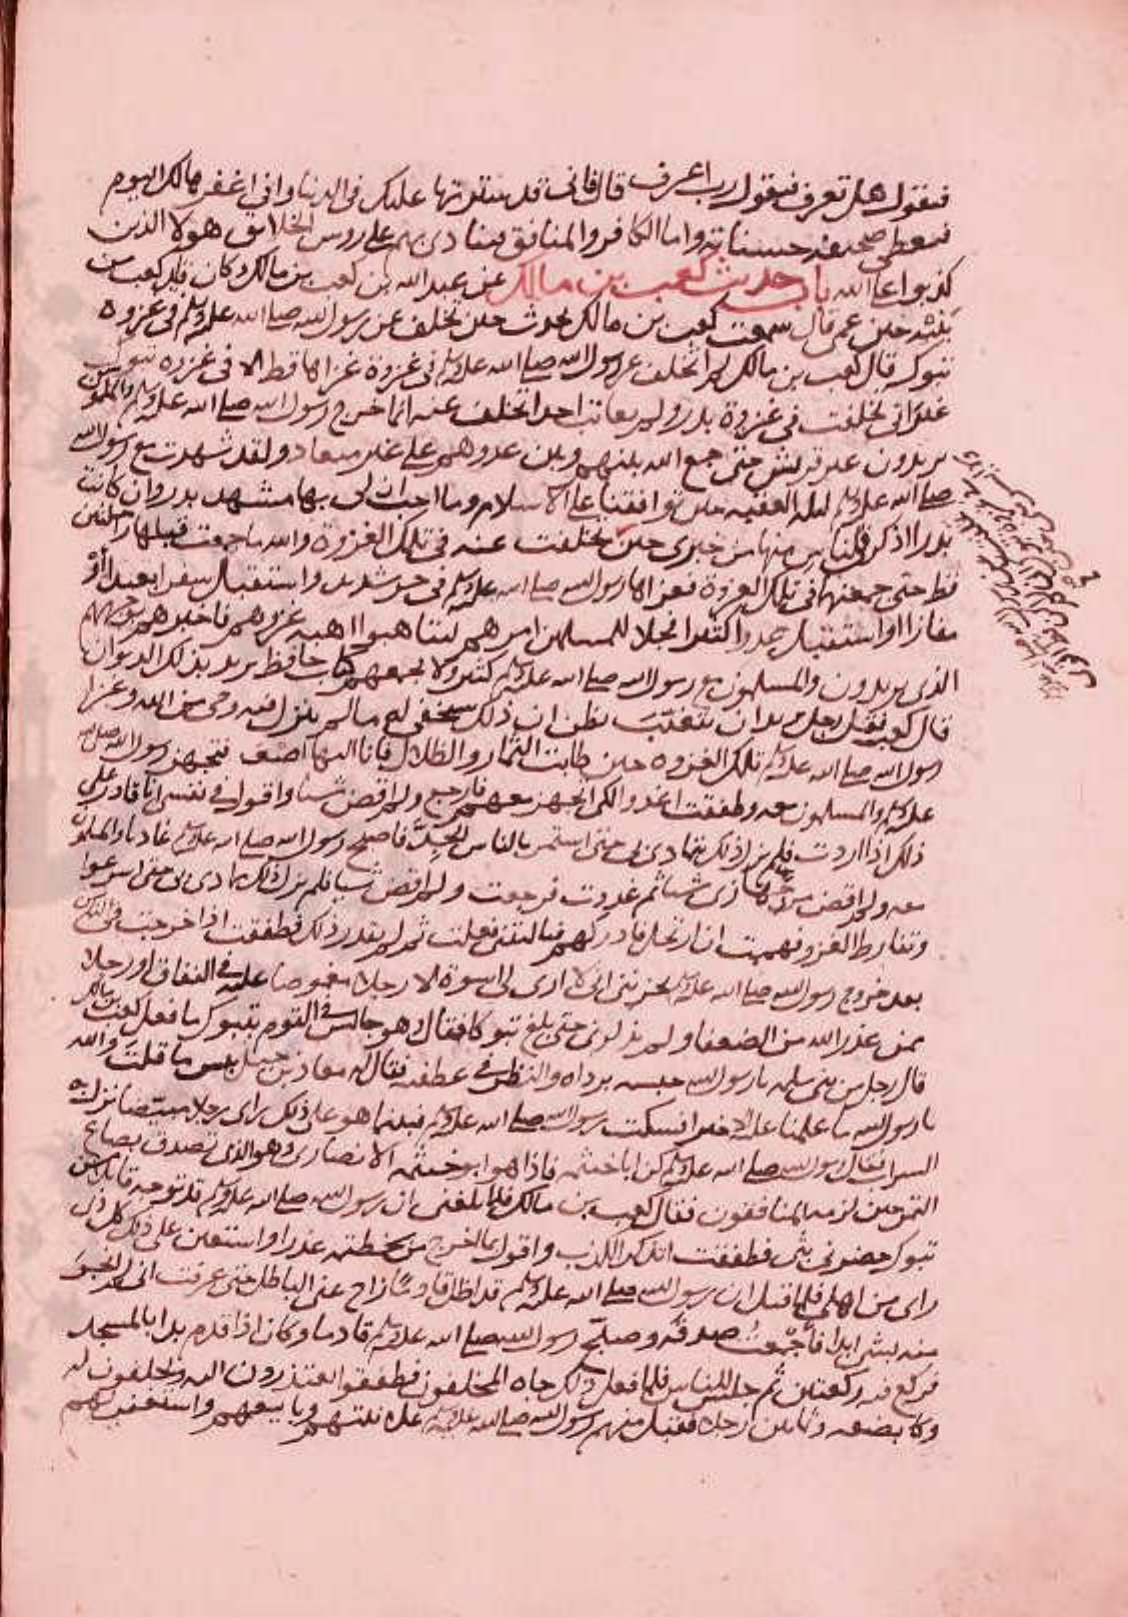 فيقول هل تعرف فيقول رب اعرف قال فاني قد سترتها عليك في الدنيا واني اغفرها لك اليوم
فيعطى صحيفة حسناته واما الكافر والمنافق فينادى بهم على روس الخلائق هولا الذين
كذبوا على الله باب حديث كعب بن مالك عن عبد الله بن كعب بن مالك وكان قايد كعب من
بنيه حين عمي قال سمعت كعب بن مالك يحدث حين تخلف عن رسول الله صلى الله عليه وسلم في غزوة
تبوك قال كعب بن مالك لم اتخلف عن رسول الله صلى الله عليه وسلم في غزوة غزاها قط الا في غزوة تبوك
غير اني تخلفت في غزوة بدر ولم يعاتب احدا تخلف عنه انما خرج رسول الله صلى الله عليه وسلم والمسلمون
يريدون عير قريش حتى جمع الله بينهم وبين عدوهم على غير ميعاد ولقد شهدت مع رسول الله
صلى الله عليه وسلم ليلة العقبه حين تواثقنا على الاسلام وما احب ان لي بها مشهد بدر وان كانت
بدرا اذكر في الناس منها من خبري حين تخلفت عنه في تلك الغزوة والله ما جمعت قبلها راحلتين
قط حتى جمعتهما في تلك الغزوة فغزاها رسول الله صلى الله عليه وسلم في حر شديد واستقبل سفرا بعيدا و
مفازا واستقبل عدوا كثيرا فجلا للمسلمين امرهم ليتاهبوا اهبة غزوهم فاخبرهم بوجههم
الذي يريدون والمسلمون مع رسول الله صلى الله عليه وسلم كثير ولا يجمعهم كتاب حافظ يريد بذلك الديوان
قال كعب فقل رجل يريد ان يتغيب يظن ان ذلك سيخفى له ما لم ينزل فيه وحي من الله وغزا
رسول الله صلى الله عليه وسلم تلك الغزوة حين طابت الثمار والظلال فانا اليها اصغر فتجهز رسول الله صلى الله
عليه وسلم والمسلمون معه وطفقت اغدو لكي اتجهز معهم فارجع ولم اقض شيا واقول في نفسي انا قادر على
ذلك اذا اردت فلم يزل ذلك يتمادى بي حتى استمر بالناس الجد فاصبح رسول الله صلى الله عليه وسلم غاديا والمسلمون
معه ولم اقض من جهازي شيا ثم غدوت فرجعت ولم اقض شيا فلم يزل ذلك يتمادى بي حتى اسرعوا
وتفارط الغزو فهممت ان ارتحل فادركهم فياليتني فعلت ثم لم يقدر ذلك فطفقت اذا خرجت في الناس
بعد خروج رسول الله صلى الله عليه وسلم يحزنني اني لا ارى لي اسوة الا رجلا مغموصا عليه في النفاق او رجلا
ممن عذر الله من الضعفا ولم يذكرني حتى بلغ تبوكا فقال وهو جالس في القوم بتبوك ما فعل كعب بن مالك
قال رجل من بني سلمه يا رسول الله حبسه برداه والنظر في عطفيه فقال له معاذ بن جبل بيس ما قلت والله
يا رسول الله ما علمنا عليه الا خيرا فسكت رسول الله صلى الله عليه وسلم فبينما هو على ذلك راى رجلا مبيضا يزول به
السراب فقال رسول الله صلى الله عليه وسلم كن ابا خيثمه فاذا هو ابو خيثمه الانصاري وهو الذي تصدق بصاع
التمر حين لمزه المنافقون فقال كعب بن مالك فلما بلغني ان رسول الله صلى الله عليه وسلم قد توجه قافلا من
تبوك حضرني بثي فطفقت اتذكر الكذب واقول بما اخرج من سخطته غدا واستعين على ذلك كل ذي
راى من اهلي فلما قيل ان رسول الله صلى الله عليه وسلم قد اظل قادما زاح عني الباطل حتى عرفت اني لن انجو
منه بشي ابدا فاجمعت صدقه وصبح رسول الله صلى الله عليه وسلم قادما وكان اذا قدم بدا بالمسجد
فركع فيه ركعتين ثم جلس للناس فلما فعل ذلك جاه المخلفون فطفقوا يعتذرون اليه ويحلفون له
وكانوا بضعه وثمانين رجلا فقبل منهم رسول الله صلى الله عليه وسلم علانيتهم وبايعهم واستغفر لهم